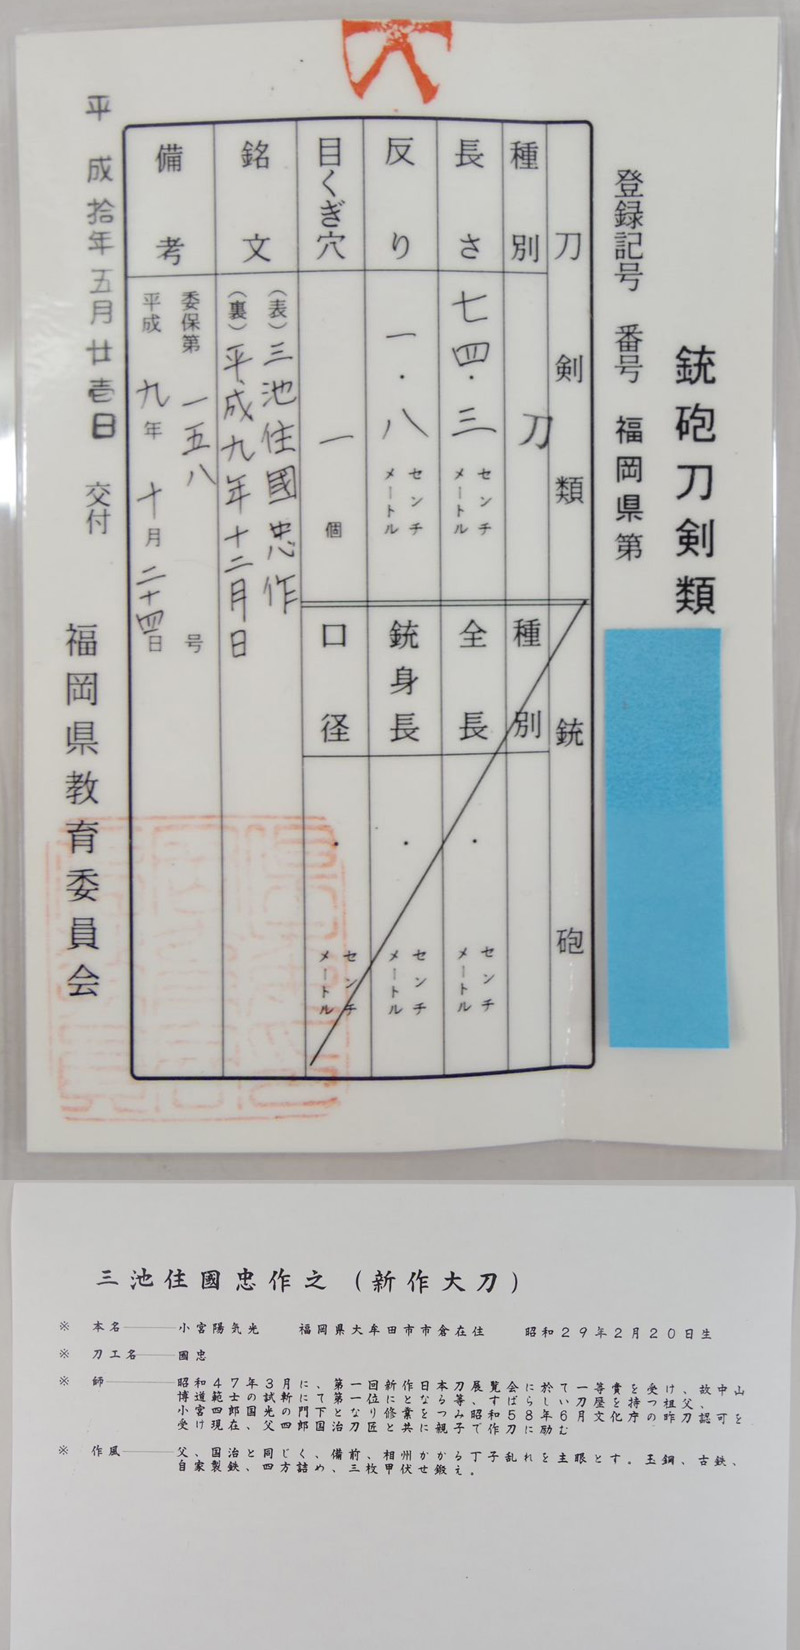 銃砲刀剣類
登録記号 番号 福岡県第
刀剣類
種別 刀
長さ 七四.三 センチメートル
反り 一.八 センチメートル
目くぎ穴 一 個
銃砲
種別
全長 . センチメートル
銃身長 . センチメートル
口径 . センチメートル
銘文 (表)三池住國忠作
(裏)平成九年十二月日
備考 委保第 一五八 号
平成 九年 十月 二十四日
平成拾年五月廿壱日 交付
福岡県教育委員会
三池住國忠作之(新作大刀)
※ 本名──小宮陽気光 福岡県大牟田市市倉在住 昭和29年2月20日生
※ 刀工名──國忠
※ 師──昭和47年3月に、第一回新作日本刀展覧会に於て一等賞を受け、故中山
博道範士の試斬にて第一位にとなる等、すばらしい刀歴を持つ祖父、
小宮四郎国光の門下となり修業をつみ昭和58年6月文化庁の作刀認可を
受け現在、父四郎国治刀匠と共に親子で作刀に励む
※ 作風──父、国治と同じく、備前、相州かかる丁子乱れを主眼とす。玉鋼、古鉄、
自家製鉄、四方詰め、三枚甲伏せ鍛え。